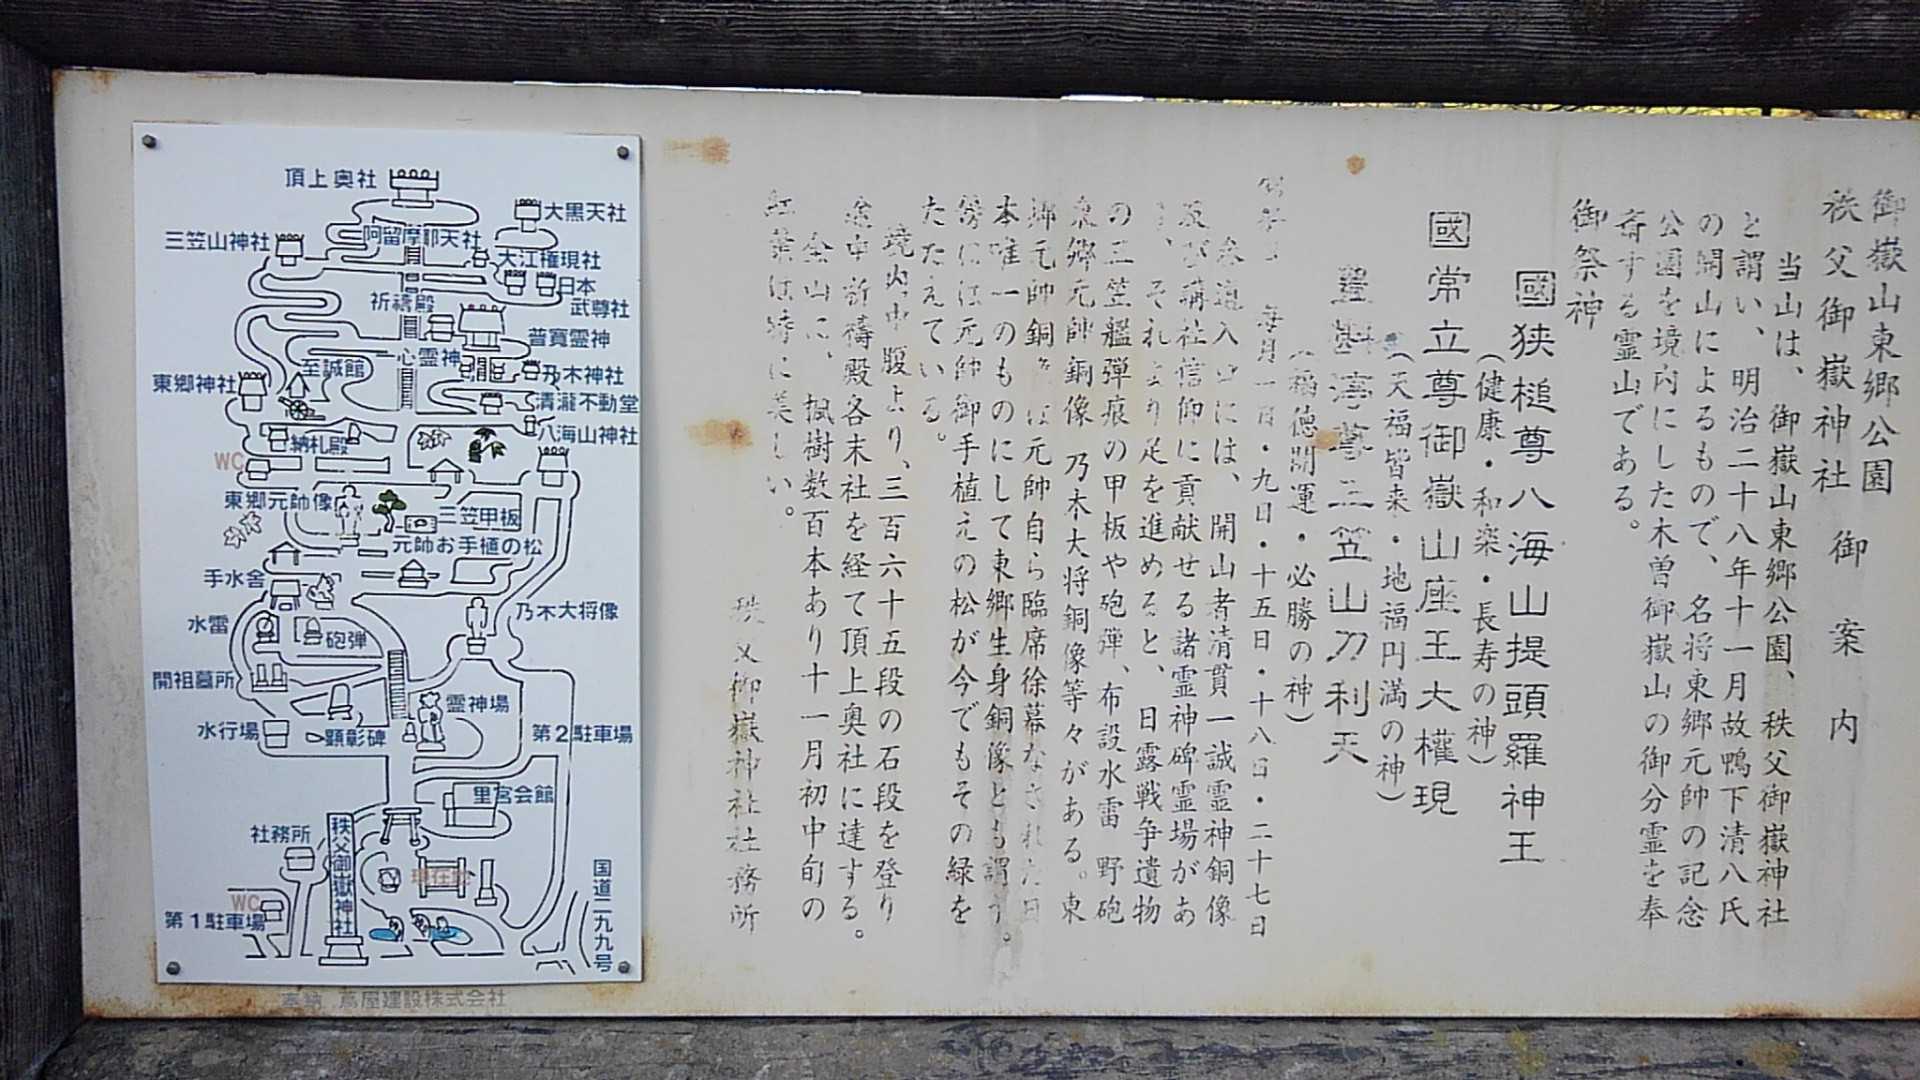 御嶽山東郷公園
秩父御嶽神社 御案内
当山は、御嶽山東郷公園、秩父御嶽神社
と謂い、明治二十八年十一月故鴨下清八氏
の開山によるもので、名将東郷元帥の記念
公園を境内にした木曽御嶽山の御分霊を奉
斎する霊山である。
御祭神
國狭槌尊八海山提頭羅神王
(健康・和楽・長寿の神)
國常立尊御嶽山座王大權現
(天福皆来・地福円満の神)
三笠山刀利天
福徳開運・必勝の神)
毎月一日・九日・十五日・十八日・二十七日
参道入口には、開山者清貫一誠霊神銅像
及び講社信仰に貢献せる諸霊神碑霊場があ
り、それより足を進めると、日露戦争遺物
の三笠艦弾痕の甲板や砲弾、布設水雷 野砲
東郷元帥銅像 乃木大将銅像等々がある。東
郷元帥銅像は元帥自ら臨席徐幕なされた日
本唯一のものにして東郷生身銅像とも謂う。
傍には元帥御手植えの松が今でもその緑を
たたえている。
境内中腹より、三百六十五段の石段を登り
途中祈禱殿各末社を経て頂上奥社に達する。
全山に、楓樹数百本あり十一月初中旬の
紅葉は特に美しい。
秩父御嶽神社社務所
頂上奥社
大黒天社
阿留摩耶天社
三笠山神社
大江権現社
日本
武尊社
祈禱殿
普寛霊神
心霊神
至誠館
東郷神社
乃木神社
清瀧不動堂
八海山神社
納札殿
WC
東郷元帥像
三笠甲板
元帥お手植の松
手水舎
水雷
砲弾
乃木大将像
開祖墓所
霊神場
水行場
顕彰碑
第2駐車場
里宮会館
社務所
秩父御嶽神社
現在地
国道二九九号
WC
第1駐車場
奉納 蔦屋建設株式会社